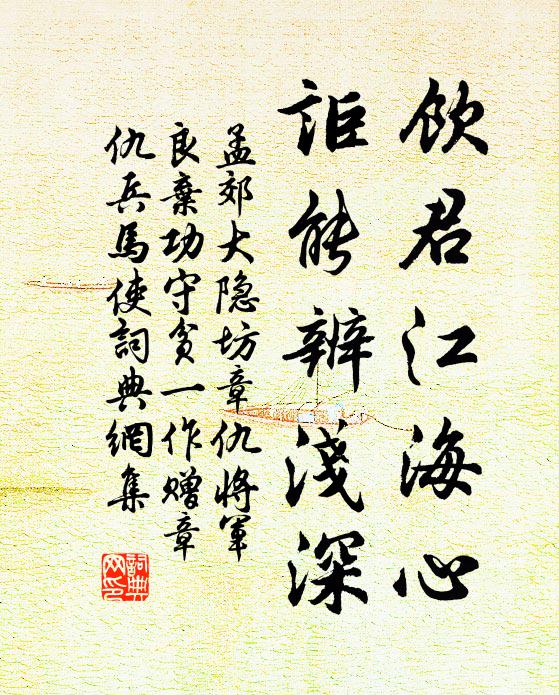 飲君江海心
詎能辨淺深
孟郊大隐坊章仇將軍
良棄功守貧一作赠章
仇兵馬使詞典網集
詞典
网印